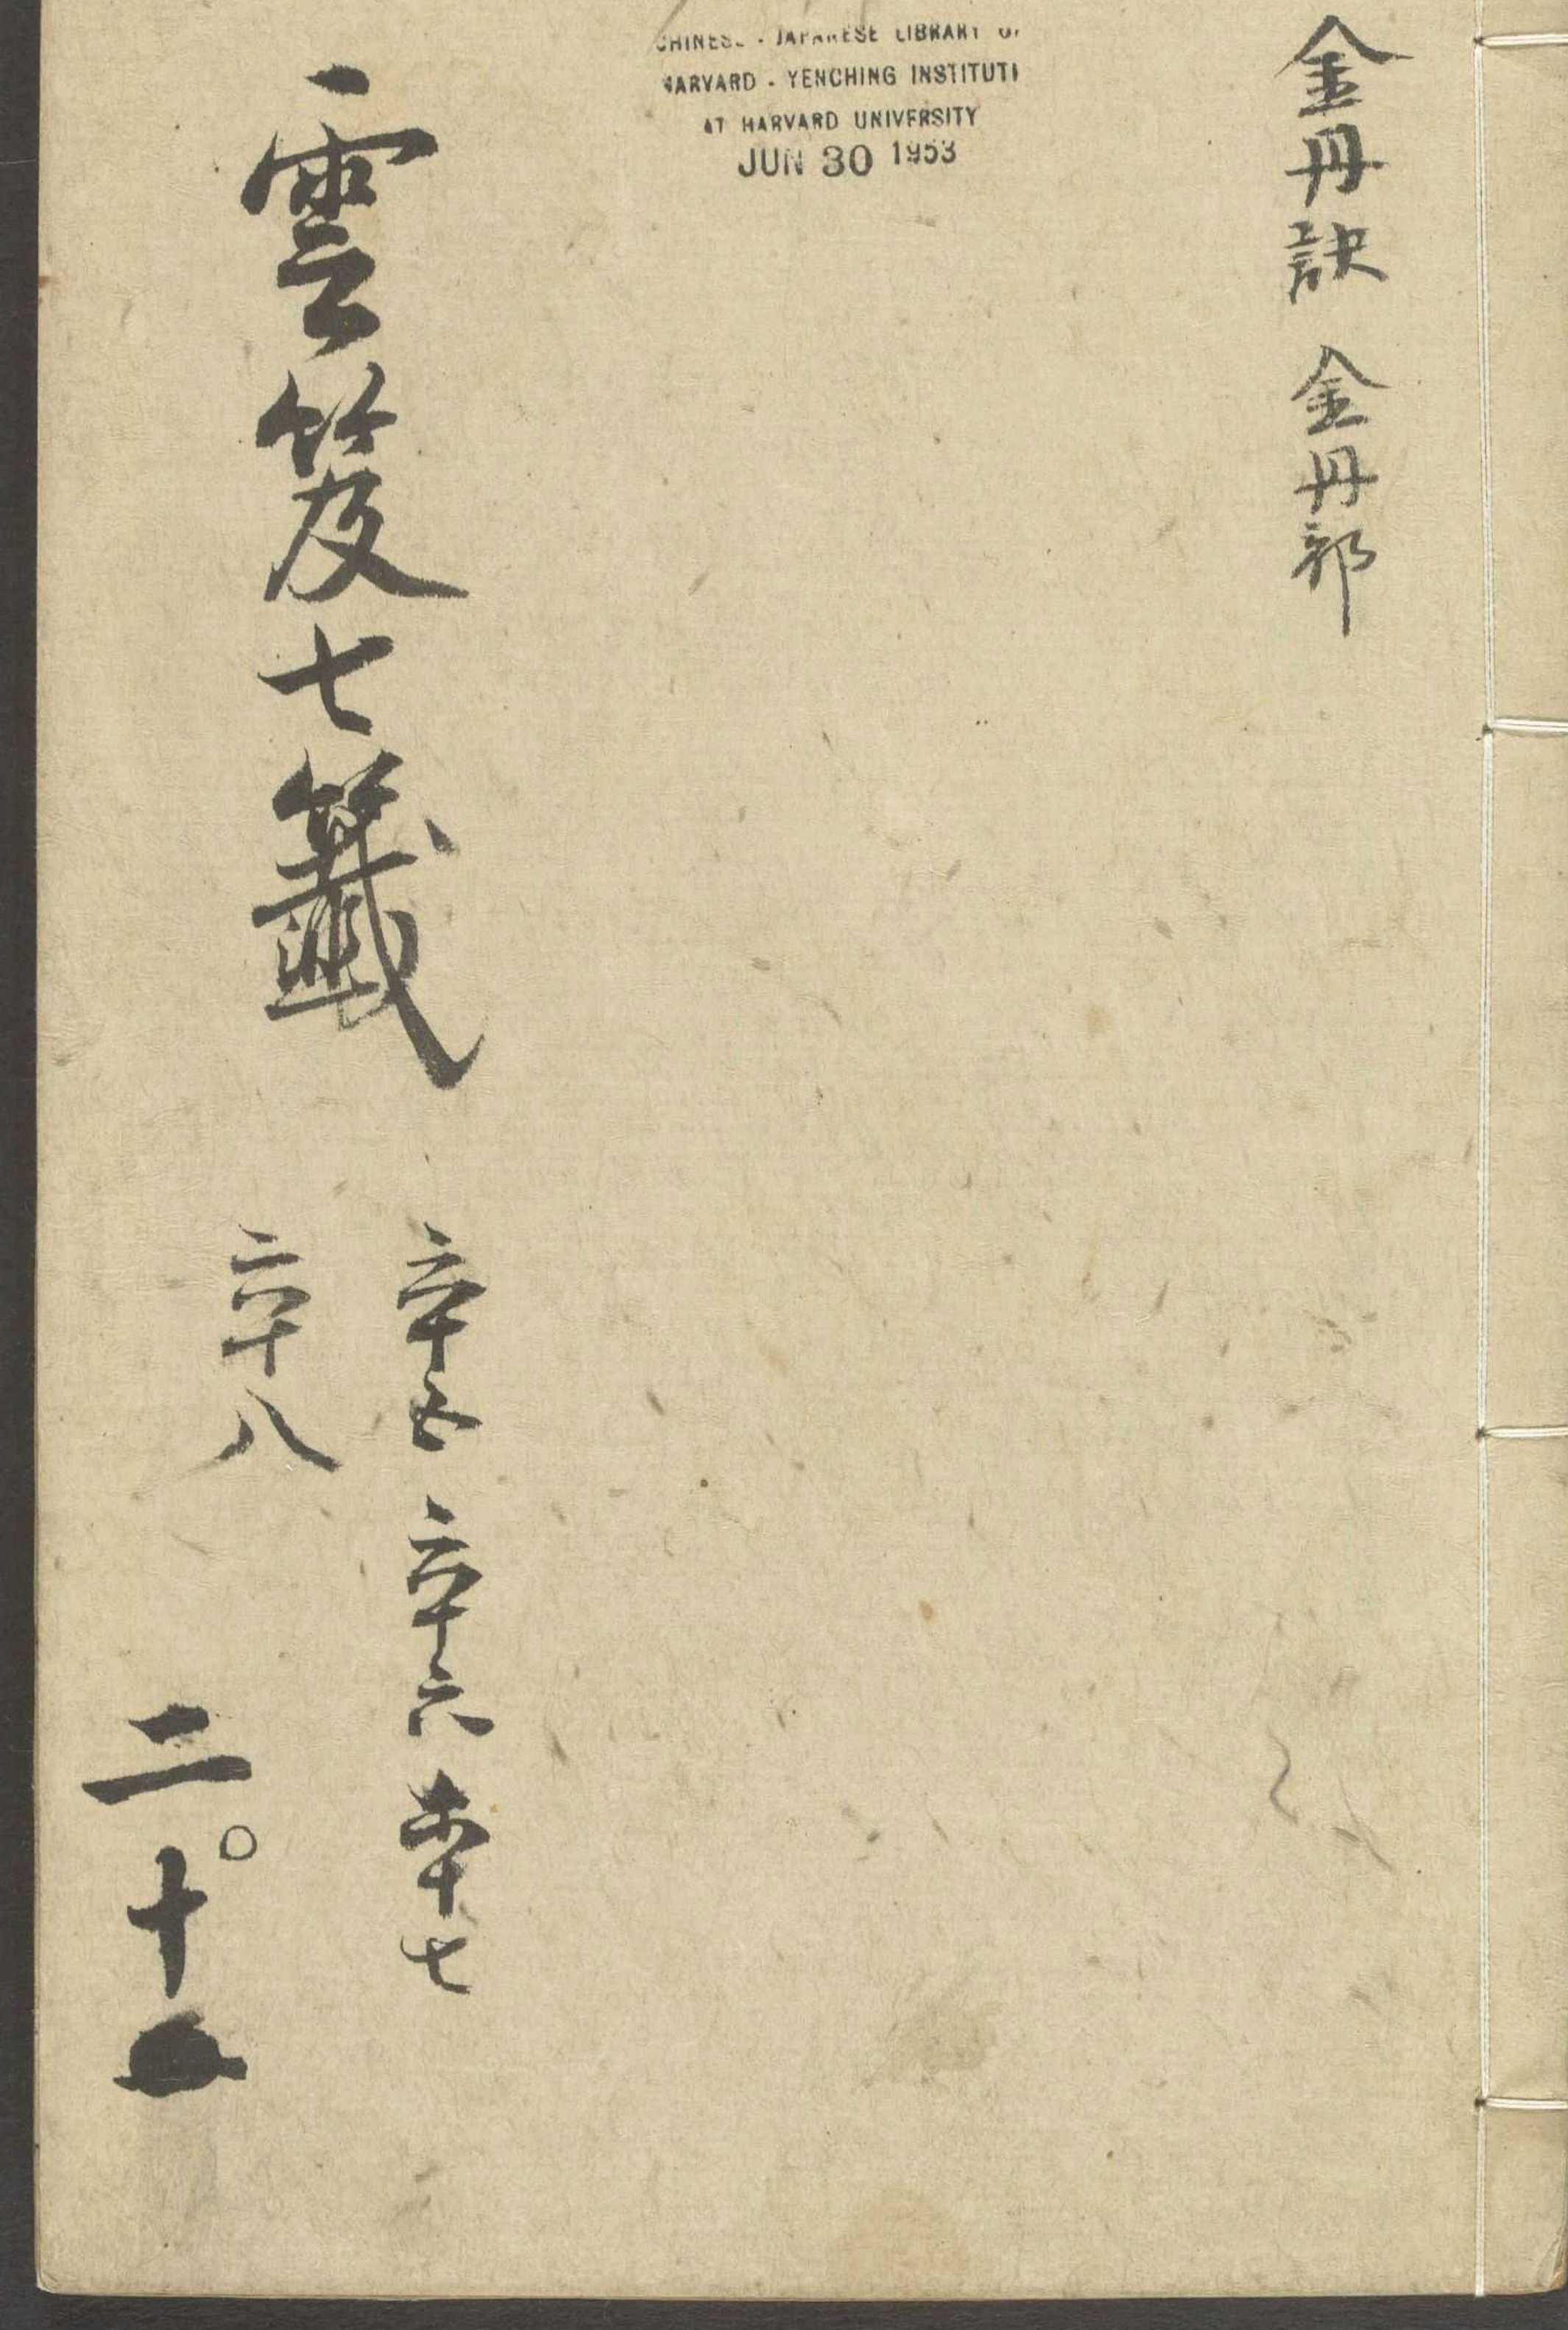 金丹訣 金丹部
CHINESE - JAPANESE LIBRARY OF
HARVARD - YENCHING INSTITUTE
AT HARVARD UNIVERSITY
JUN 30 1953
六十五 六十六 六十七
雲笈七籤
六十八
二〇十